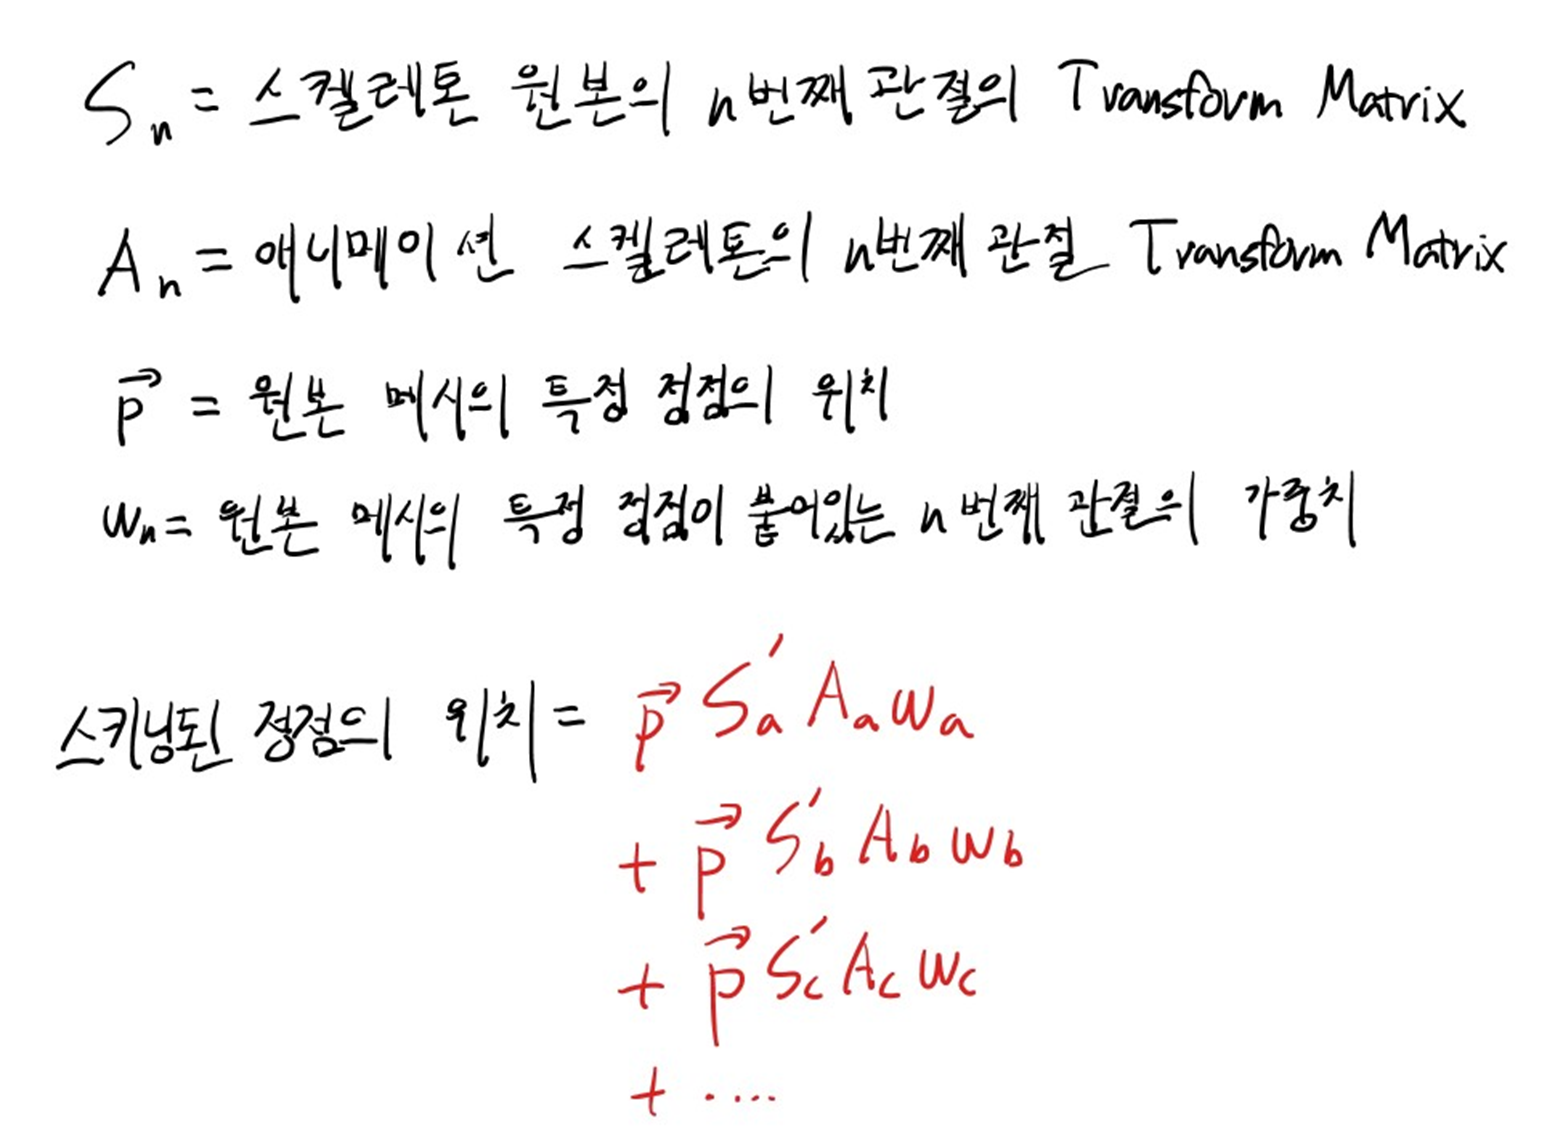 Sn = 스켈레톤 원본의 n번째 관절의 Transform Matrix
An = 애니메이션 스켈레톤의 n번째 관절 Transform Matrix
p⃗ = 원본 메시의 특정 정점의 위치
wn = 원본 메시의 특정 정점이 붙어있는 n번째 관절의 가중치
스키닝된 정점의 위치 = p⃗ Sa′ Aa wa
+ p⃗ Sb′ Ab wb
+ p⃗ Sc′ Ac wc
+ ....